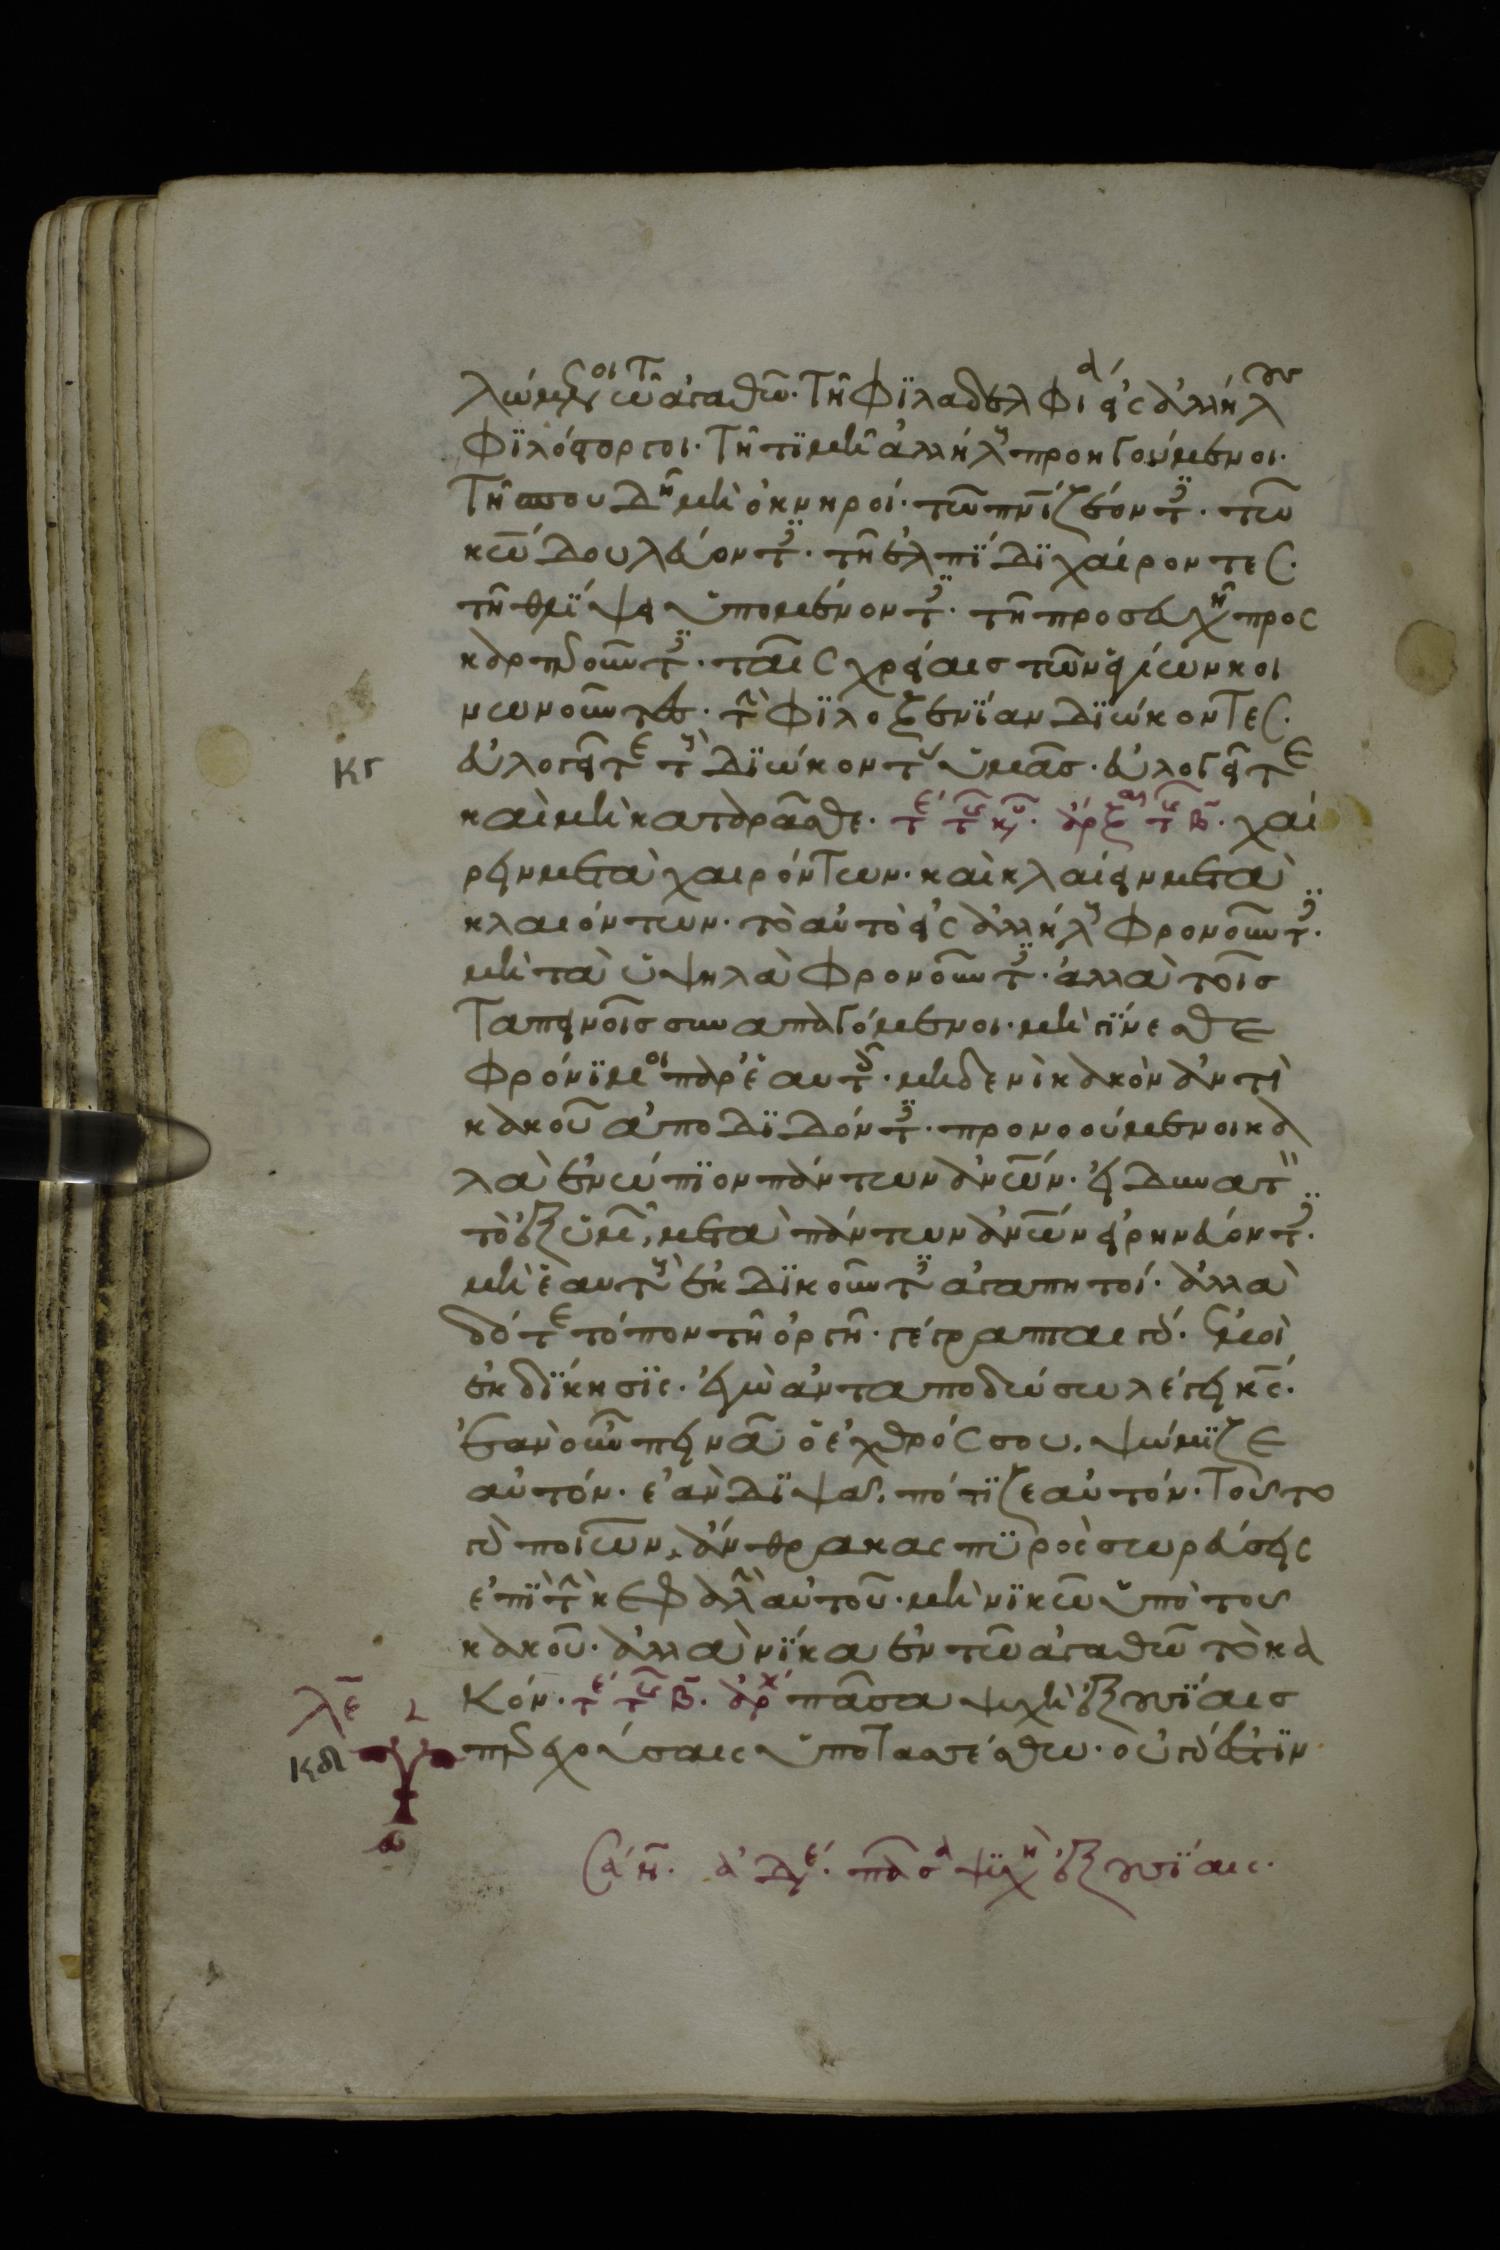 λώμενοι τῶ ἀγαθῶ. Τῆ Φϊλαδελφία εἰς ἀλλήλους
Φϊλόστοργοι. Τῆ τϊμῆ ἀλλήλους προηγούμενοι.
Τῆ σπουδῆ μὴ ὀκνηροί. τῶ πνῑ ζέοντες. τῶ
κω̄ δουλεύοντες. τῆ ἐλπίδϊ χαίροντες.
τῆ θλίψει ὑπομένοντες. τῆ προσευχῆ προσ
καρτεροῦντες. ταῖς χρείαις τῶν ἁγίων κοι
νωνοῦντες. τὴν Φϊλοξενίαν δϊώκοντες.
Κγ εὐλογεῖτε τοὺς δϊώκοντας ὑμᾶς. εὐλογεῖτε
καὶ μὴ καταρᾶσθε. τε τῆς κυ. ἄρξαι τῆς β̄. χαί
ρειν μετὰ χαιρόντων. καὶ κλαίειν μετὰ
κλαιόντων. τὸ αὐτὸ εἰς ἀλλήλους Φρονοῦντες.
μὴ τὰ ὑψηλὰ Φρονοῦντες. ἀλλὰ τοῖς
Ταπεινοῖς συναπαγόμενοι. μὴ γίνεσθε
Φρόνϊμοι παρ' ἑαυτοῖς. μηδενὶ κακὸν ἀντὶ
κακοῦ ἀποδϊδόντες. προνοούμενοι κα
λὰ ἐνώπϊον πάντων ἀνω̄ν. εἰ δυνατὸν
τὸ ἐξ ὑμῶν, μετὰ πάντων ἀνω̄ν εἰρηνεύοντες.
μὴ ἑαυτοὺς ἐκδϊκοῦντες ἀγαπητοί. ἀλλὰ
δότε τόπον τῆ ὀργῆ. γέγραπται γάρ. Ἐμοὶ
ἐκδίκησϊς. ἐγὼ ἀνταποδώσω λέγει κς̄.
ἐὰν οὖν πεινᾶ ὁ ἐχθρός σου, ψώμϊζε
αὐτόν. ἐὰν δϊψᾶ, πότϊζε αὐτόν. Τοῦτο
γὰρ ποιῶν, ἄνθρακας πυρὸς σωρεύσεις
ἐπϊ τὴν κεφαλὴν αὐτοῦ. μὴ νϊκῶ ὑπὸ τοῦ
κακοῦ. ἀλλὰ νίκα ἐν τῶ ἀγαθῶ τὸ κα
λε̄ Κόν. τε τῆς β̄. ἀρχ πᾶσα ψυχὴ ἐξουσϊαις
Κδ ὑπερεχούσαις ὑποτασσέσθω. οὐ γάρ ἐστϊν
πᾶσα ψυχὴ ἐξουσίαις.